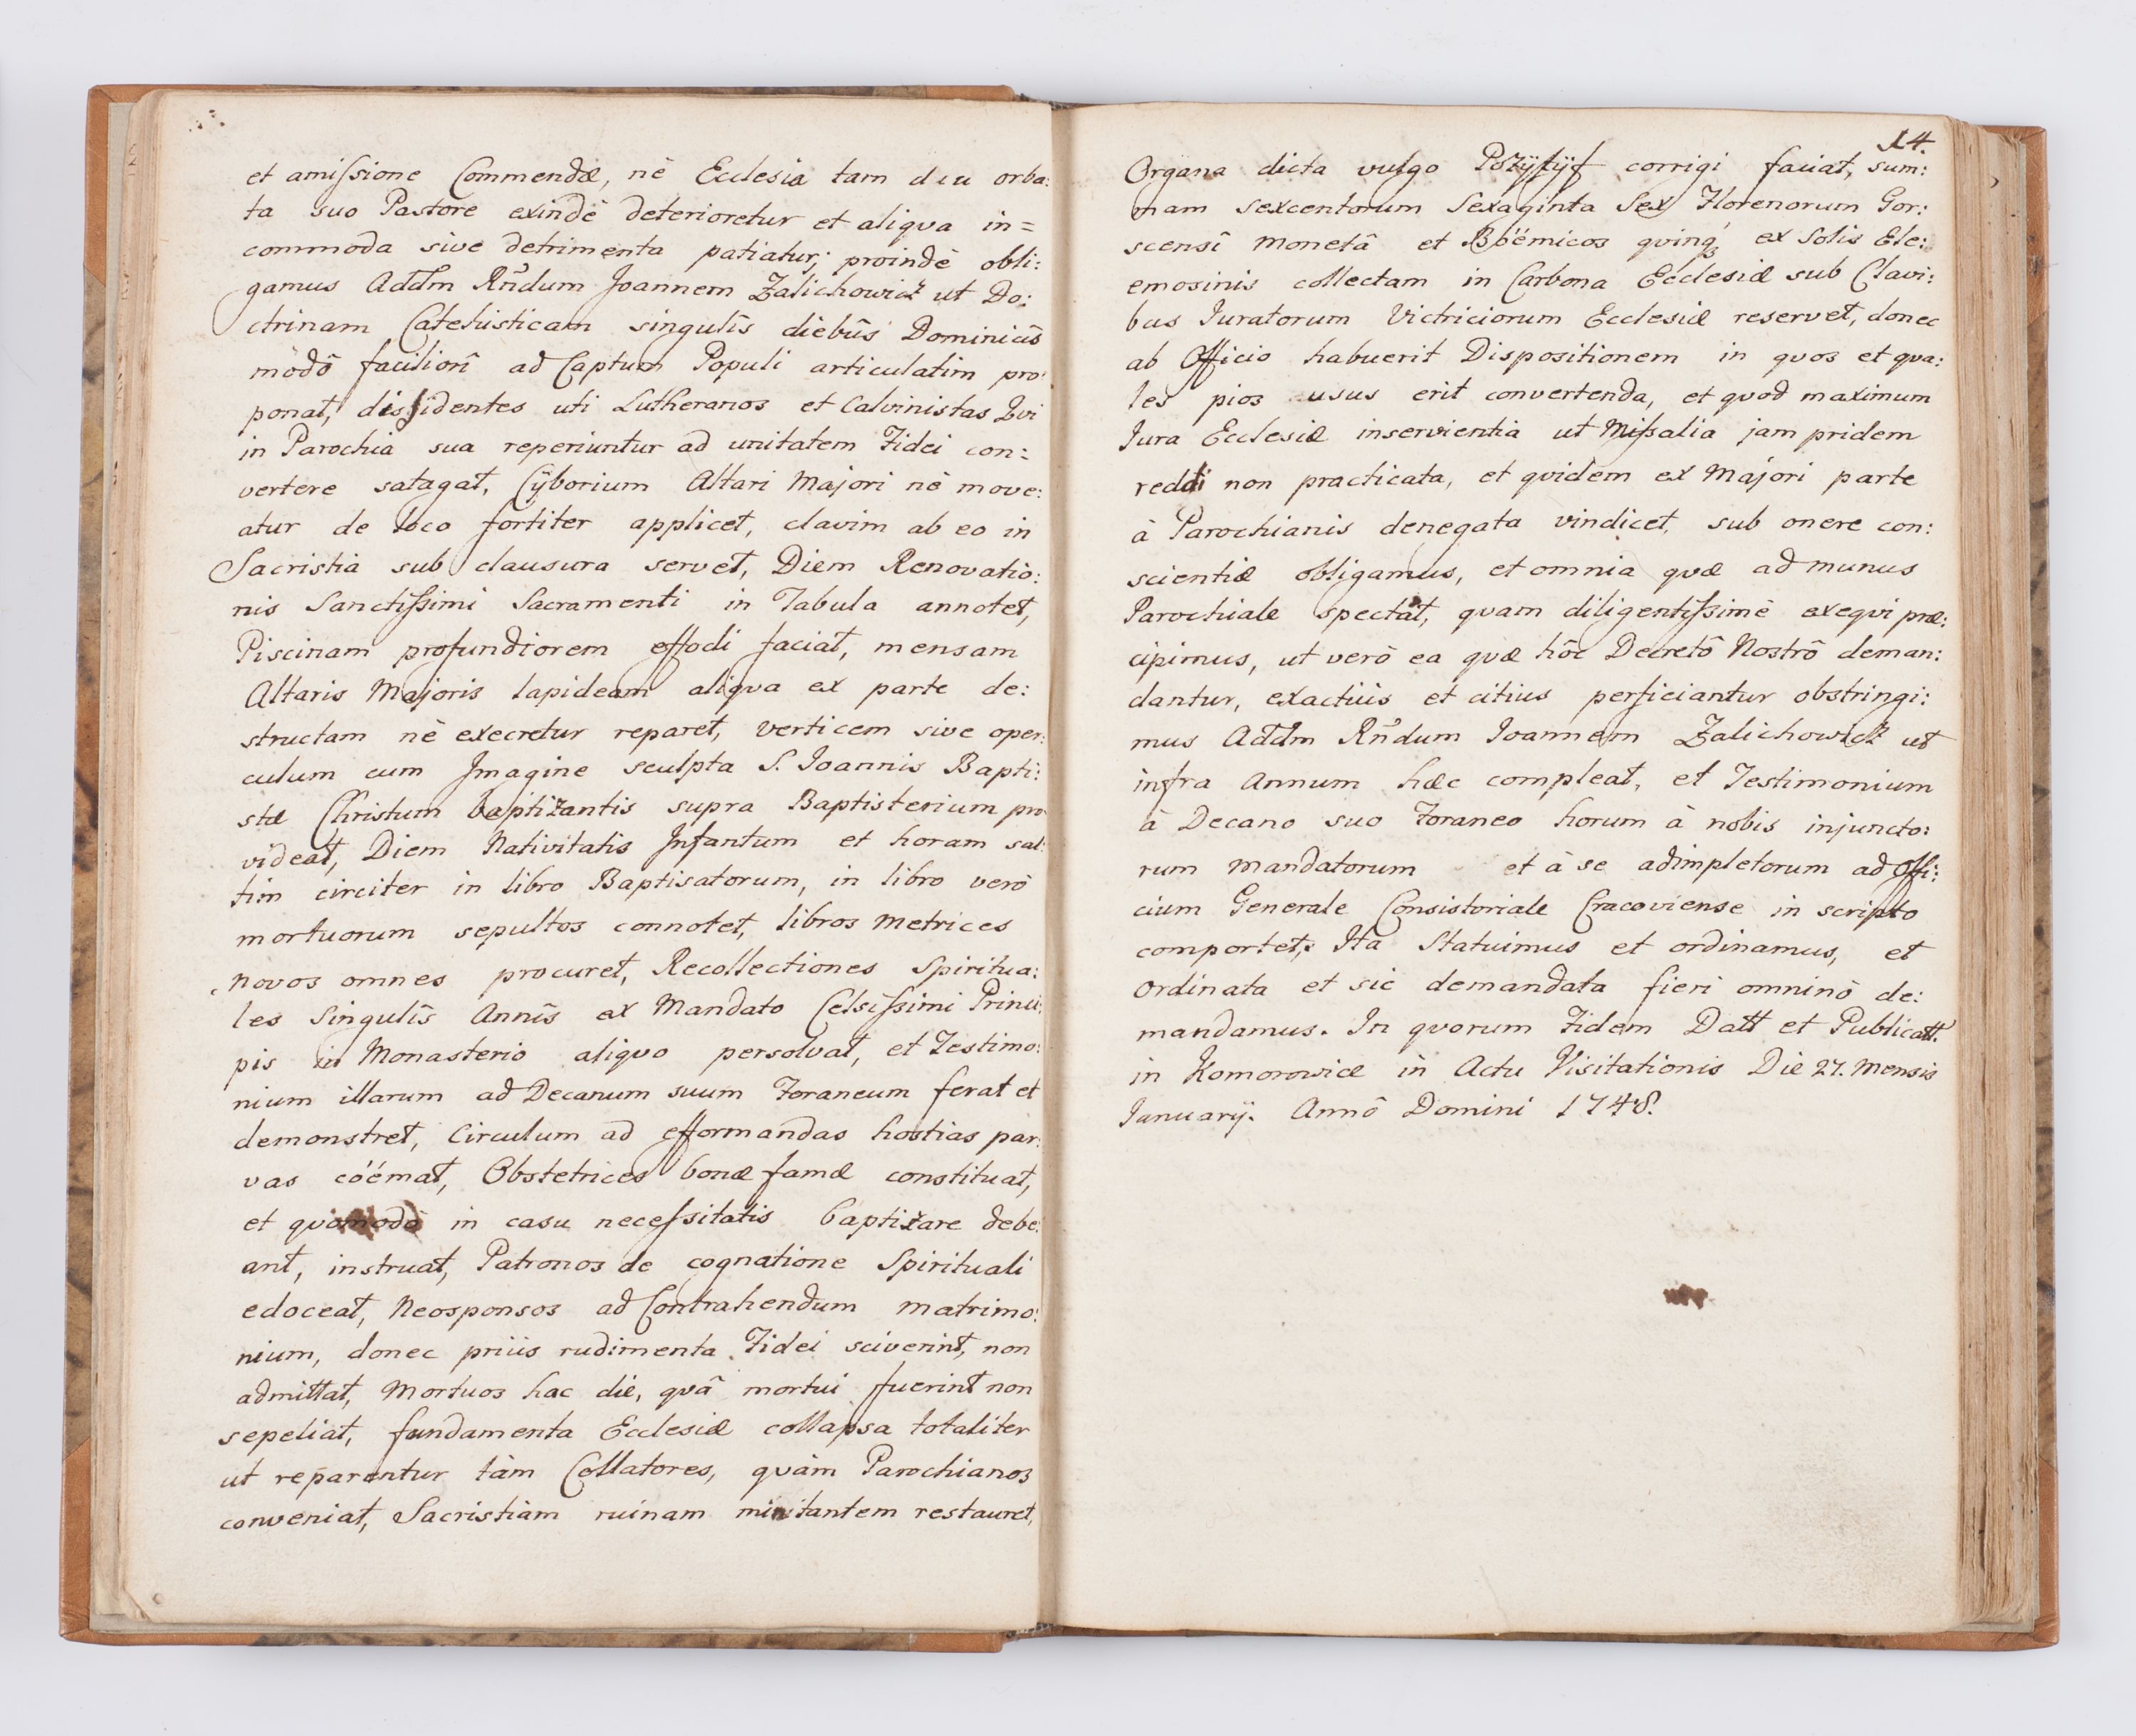 et amissione Commendæ, nè Ecclesia tam diu orba:
ta suo Pastore exindè deterioretur et aliqva in=
commoda sive detrimenta patiatur; proindè obli:
gamus Addm Rñdum Joannem Zalichowicz ut Do:
ctrinam Catehisticam singulîs diebûs Dominicîs
mòdô faciliorî ad Captum Populi articulatim pro:
ponat, dissidentes uti Lutheranos et Calvinistas Qvi
in Parochia sua reperiuntur ad unitatem Fidei con:
vertere satagat, Cÿborium Altari Majori nè move:
atur de loco fortiter applicet, clavim ab eo in
Sacristia sub clausura servet, Diem Renovatio:
nis Sanctissimi Sacramenti in Tabula annotet,
Piscinam profundiorem effodi faciat, mensam
Altaris Majoris lapideam aliqva ex parte de:
structam nè execretur reparet, verticem sive oper:
culum cum Jmagine sculpta S. Joannis Bapti:
stæ Christum baptizantis supra Baptisterium pro
videat, Diem Nativitatis Jnfantum et horam sal:
tim circiter in libro Baptisatorum, in libro verò
mortuorum sepultos connotet, libros Metrices
novos omnes procuret, Recollectiones Spiritua:
les Singulîs Annîs ex Mandato Celsissimi Princi:
pis in Monasterio aliqvo persolvat, et Testimo:
nium illarum ad Decanum suum Foraneum ferat et
demonstret, Circulum ad efformandas hostias par:
vas cóémat, Obstetrices bonæ famæ constituat,
et qvomodò in casu necessitatis baptizare debe:
ant, instruat, Patronos de cognatione Spirituali
edoceat, Neosponsos ad Contrahendum matrimo:
nium, donec priùs rudimenta Fidei sciverint, non
admittat, Mortuos hac die, qvâ mortui fuerint non
sepeliat, fundamenta Ecclesiæ collapsa totaliter
ut reparentur tàm Collatores, qvàm Parochianos
conveniat, Sacristiam ruinam minitantem restauret,
14.
Organa dicta vulgo Pozÿtÿf corrigi faciat, sum:
mam sexcentorum Sexaginta Sex Florenorum Gor:
scensî monetâ et Böémicos qvinq́ꝫ ex Solis Ele:
emosinis collectam in Carbona Ecclesiæ sub Clavi:
bus Juratorum Victriciorum Ecclesiæ reservet, donec
ab Officio habuerit Dispositionem in qvos et qva:
les pios usus erit convertenda, et qvod maximum
Jura Ecclesiæ inservientia ut Missalia jam pridem
reddi non practicata, et qvidem ex Majori parte
à Parochianis denegata vindicet, sub onere con:
scientiæ obligamus, et omnia qvæ ad munus
Parochiale spectat, qvam diligentissimè exeqvi præ:
cipimus, ut verò ea qvæ hôc Decretô Nostrô deman:
dantur, exactiùs et citius perficiantur obstringi:
mus Addm Rñdum Joannem Zalichowicz ut
infra Annum hæc compleat, et Testimonium
à Decano suo Foraneo horum à nobis injuncto:
rum mandatorum et à se adimpletorum ad Offi:
cium Generale Consistoriale Cracoviense in scripto
comportet; Jta Statuimus et ordinamus, et
ordinata et sic demandata fieri omninò de:
mandamus. In qvorum Fidem Datt et Publicatt.
in Komorowice in Actu Visitationis Die 27. Mensis
Januarÿ. Annô Domini 1748.